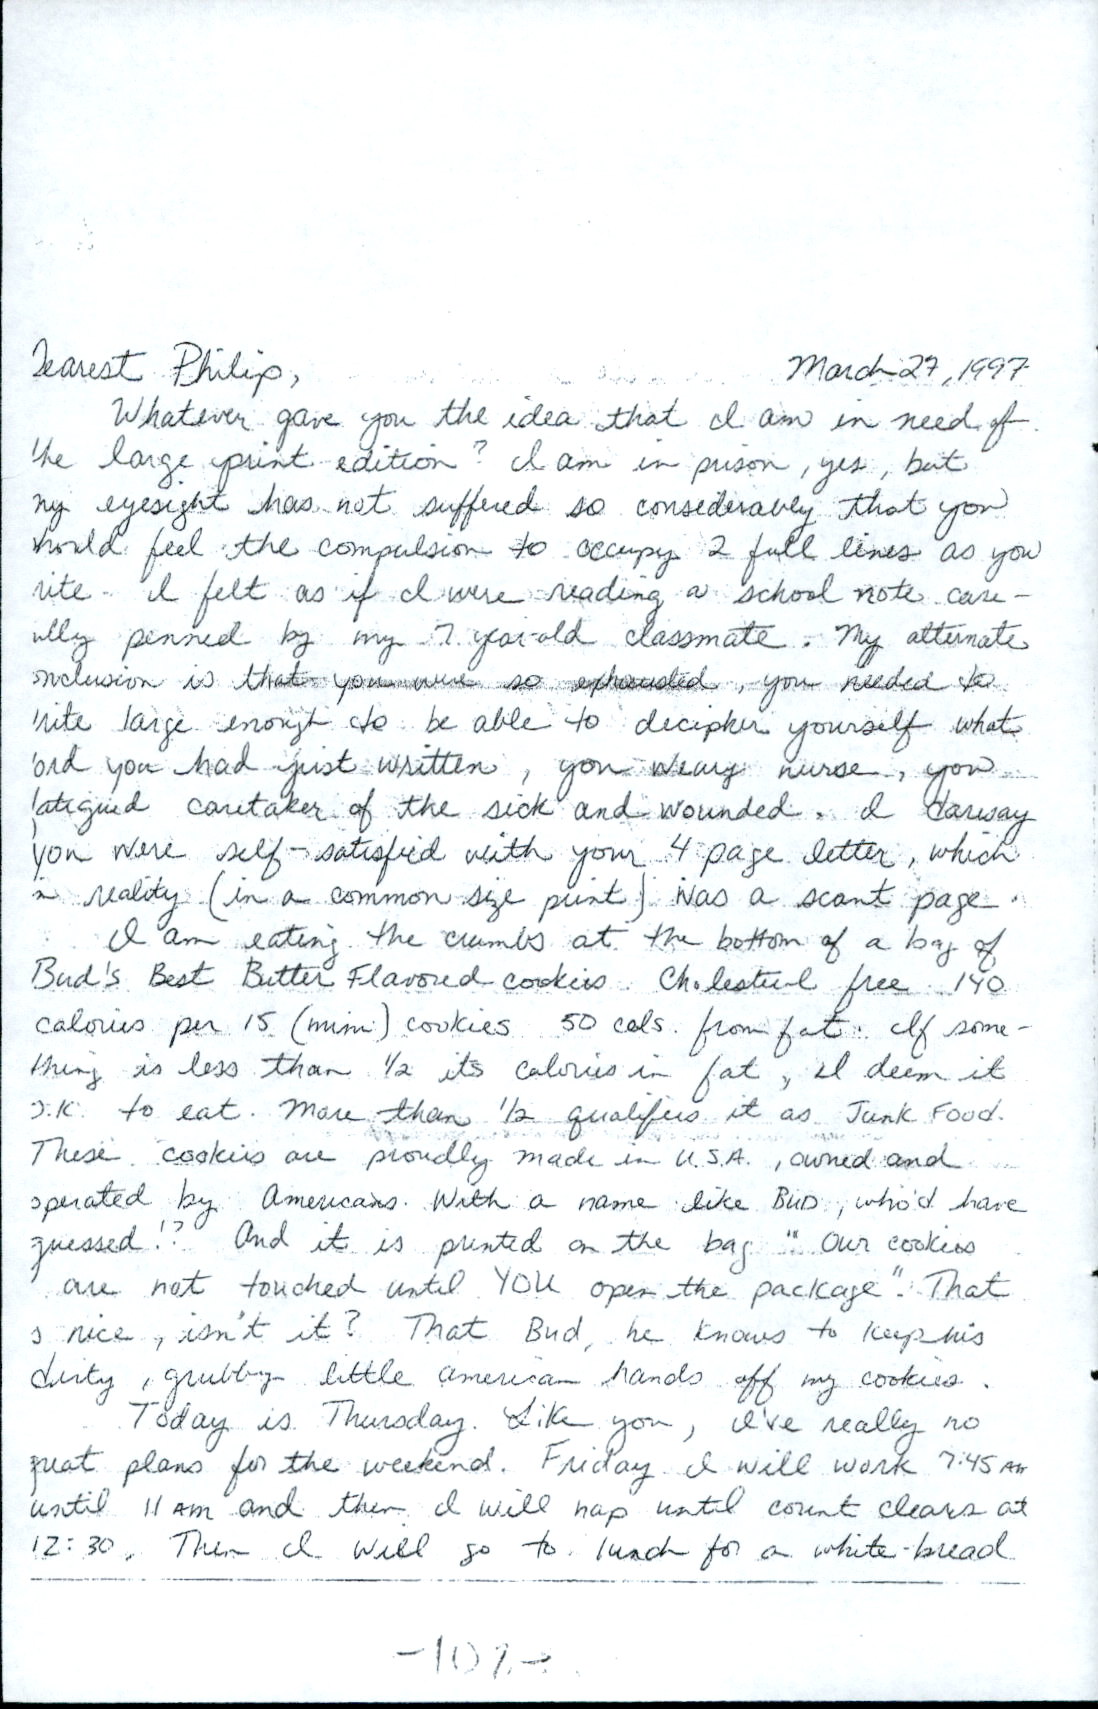 Dearest Philip, March 27, 1997
Whatever gave you the idea that I am in need of
the large print edition? I am in prison, yes, but
my eyesight has not suffered so considerably that you
would feel the compulsion to occupy 2 full lines as you
rite. I felt as if I were reading a school note care-
ully penned by my 7 year-old classmate. My alternate
onclusion is that you were so exhausted, you needed to
rite large enough to be able to decipher yourself what
ord you had just written, you weary nurse, you
fatigued caretaker of the sick and wounded. I daresay
you were self-satisfied with your 4 page letter, which
in reality (in a common size print) was a scant page.
I am eating the crumbs at the bottom of a bag of
Bud's Best Butter Flavored cookies. Cholesterol free 140
calories per 15 (mini) cookies 50 cals. from fat. If some-
thing is less than 1/2 its calories in fat, I deem it
O.K. to eat. More than 1/2 qualifies it as Junk Food.
These cookies are proudly made in U.S.A., owned and
operated by Americans. With a name like BUD, who'd have
guessed!? And it is printed on the bag "Our cookies
are not touched until YOU open the package". That
s nice, isn't it? That Bud, he knows to keep his
dirty, grubby little american hands off my cookies.
Today is Thursday. Like you, I've really no
great plans for the weekend. Friday I will work 7:45 AM
until 11 AM and then I will nap until count clears at
12:30. Then I will go to lunch for a white-bread